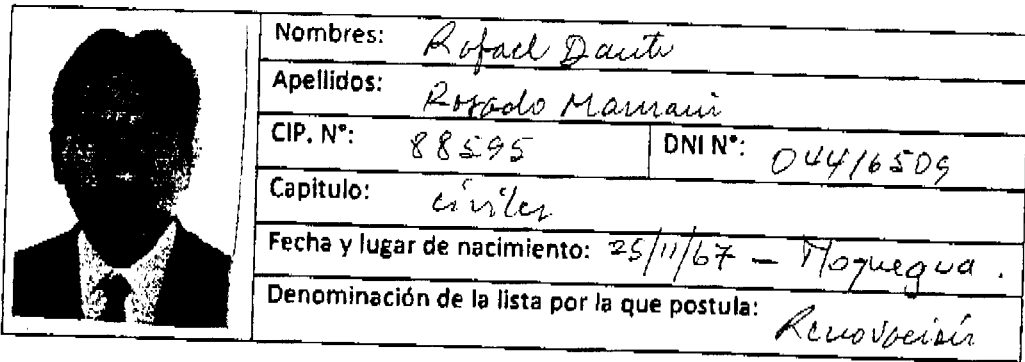 Nombres: Rafael Dante
Apellidos: Rosado Mamani
CIP. N°: 88595 DNI N°: 04416509
Capitulo: civiles
Fecha y lugar de nacimiento: 25/11/67 – Moquegua.
Denominación de la lista por la que postula: Renovación